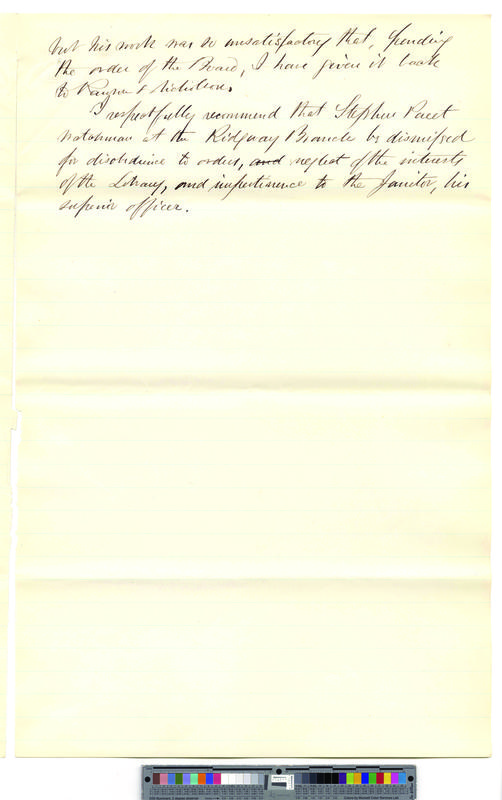 but his work was so unsatisfactory that, pending
the order of the Board, I have given it back
to Payson & Nicholson.
I respectfully recommend that Stephen
watchman at the Ridgway Branch be dismissed
for disobedience to orders, and neglect of the interests
of the Library, and impertinence to the Janitor, his
superior officer.